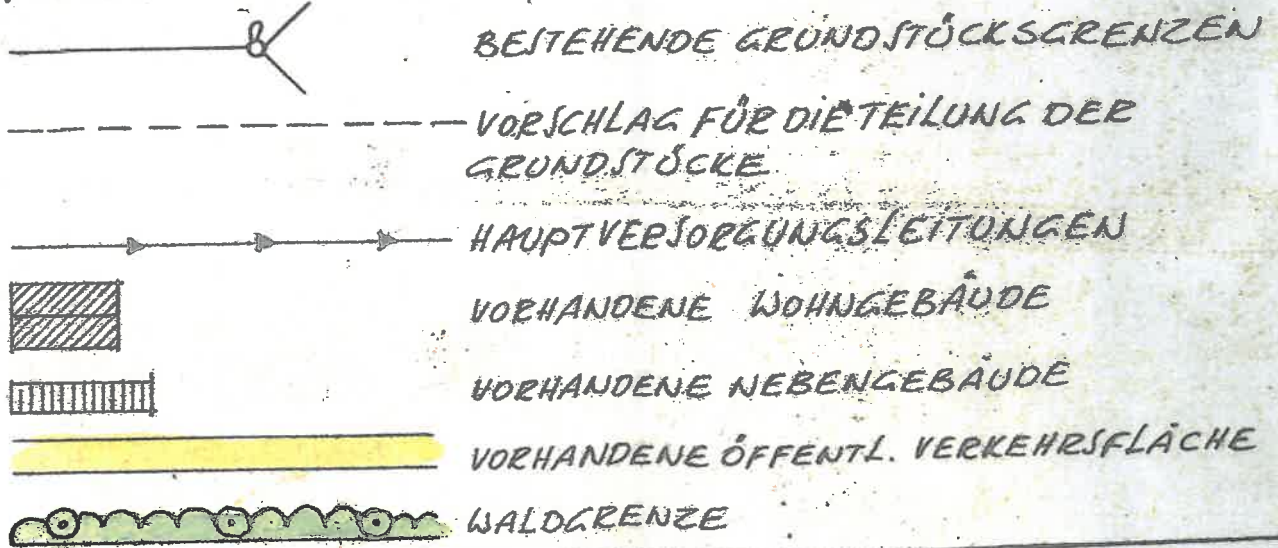 BESTEHENDE GRUNDSTÜCKSGRENZEN
VORSCHLAG FÜR DIE TEILUNG DER
GRUNDSTÜCKE
HAUPTVERSORGUNGSLEITUNGEN
VORHANDENE WOHNGEBÄUDE
VORHANDENE NEBENGEBÄUDE
VORHANDENE ÖFFENTL. VERKEHRSFLÄCHE
WALDGRENZE